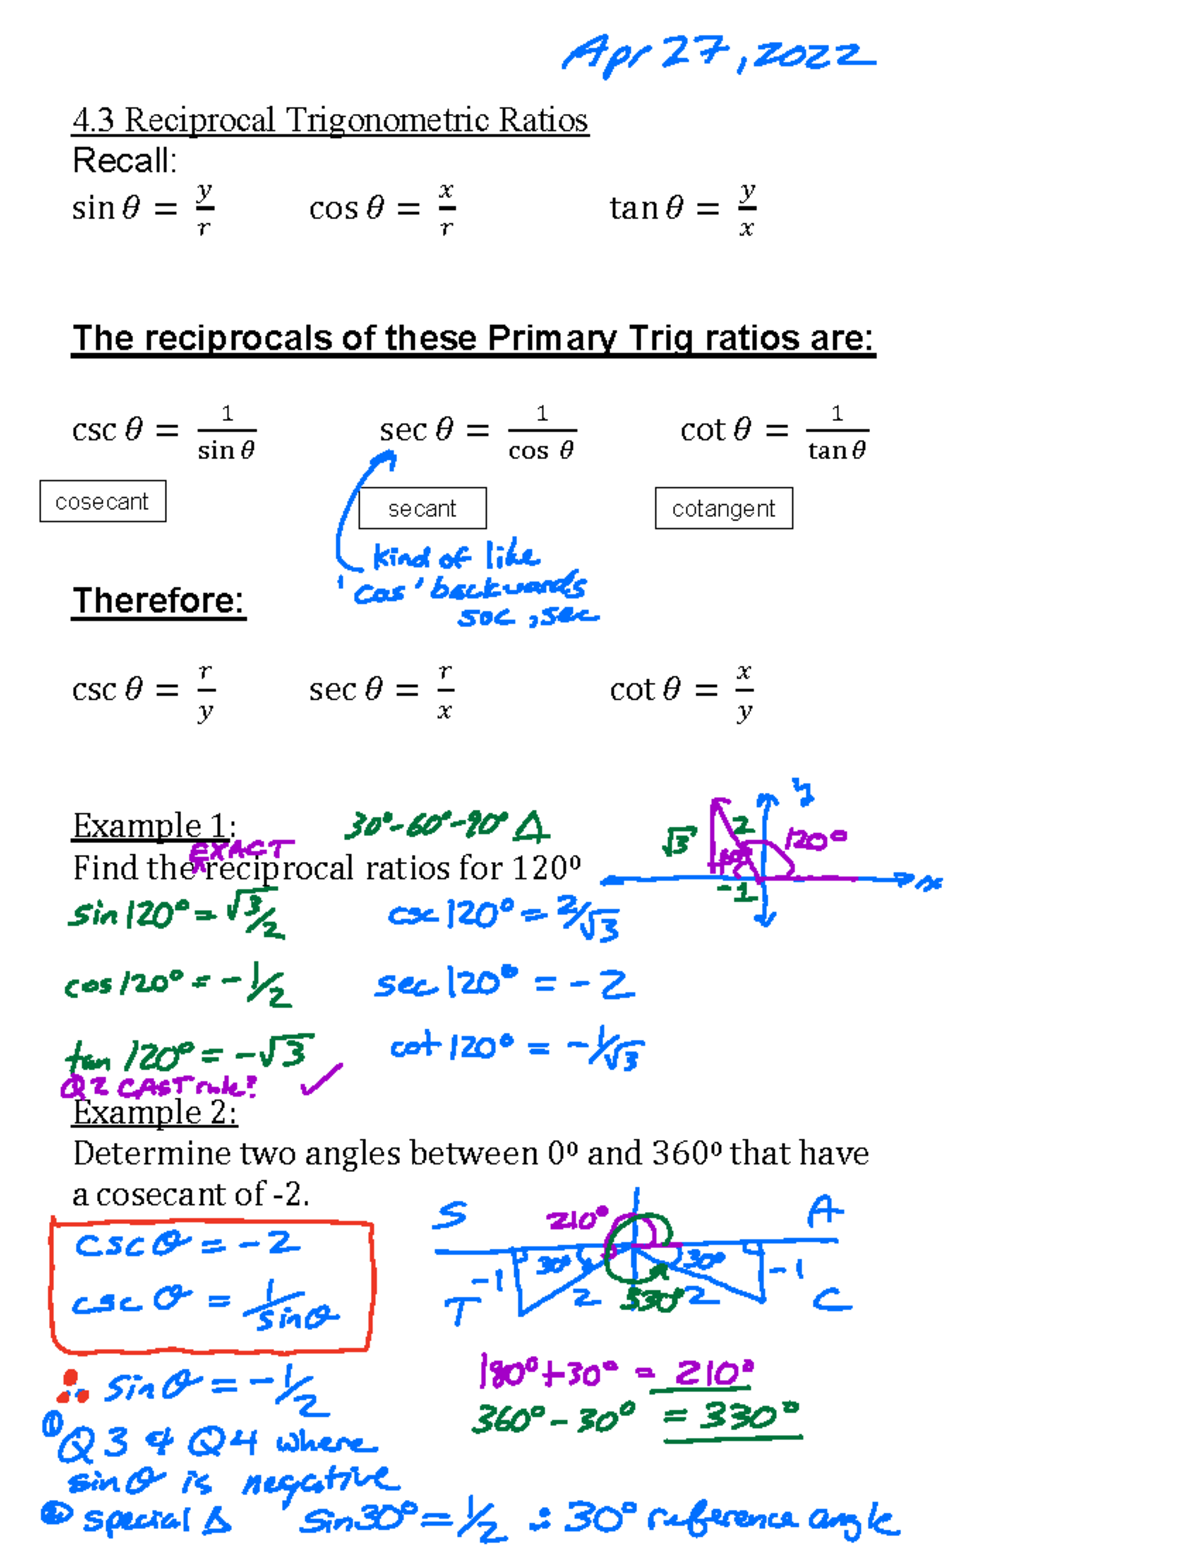 Apr 27, 2022
4.3 Reciprocal Trigonometric Ratios
Recall:
sin θ = y/r    cos θ = x/r    tan θ = y/x
The reciprocals of these Primary Trig ratios are:
csc θ = 1/sin θ    sec θ = 1/cos θ    cot θ = 1/tan θ
cosecant    secant    cotangent
kind of like
'cos' backwards
soc, sec
Therefore:
csc θ = r/y    sec θ = r/x    cot θ = x/y
Example 1:    30°-60°-90° Δ
EXACT
Find the reciprocal ratios for 120⁰
y
√3    2    120°
60°
-1    x
sin 120° = √3/2    csc 120° = 2/√3
cos 120° = -1/2    sec 120° = -2
tan 120° = -√3    cot 120° = -1/√3
Q2 CAST rule? ✓
Example 2:
Determine two angles between 0⁰ and 360⁰ that have
a cosecant of -2.
S    210°    A
csc θ = -2
-1    30°    30°    -1
T    2    330°    2    C
csc θ = 1/sin θ
180° + 30° = 210°
∴ sin θ = -1/2
360° - 30° = 330°
① Q3 & Q4 where
sin θ is negative
② special Δ    sin 30° = 1/2 ∴ 30° reference angle